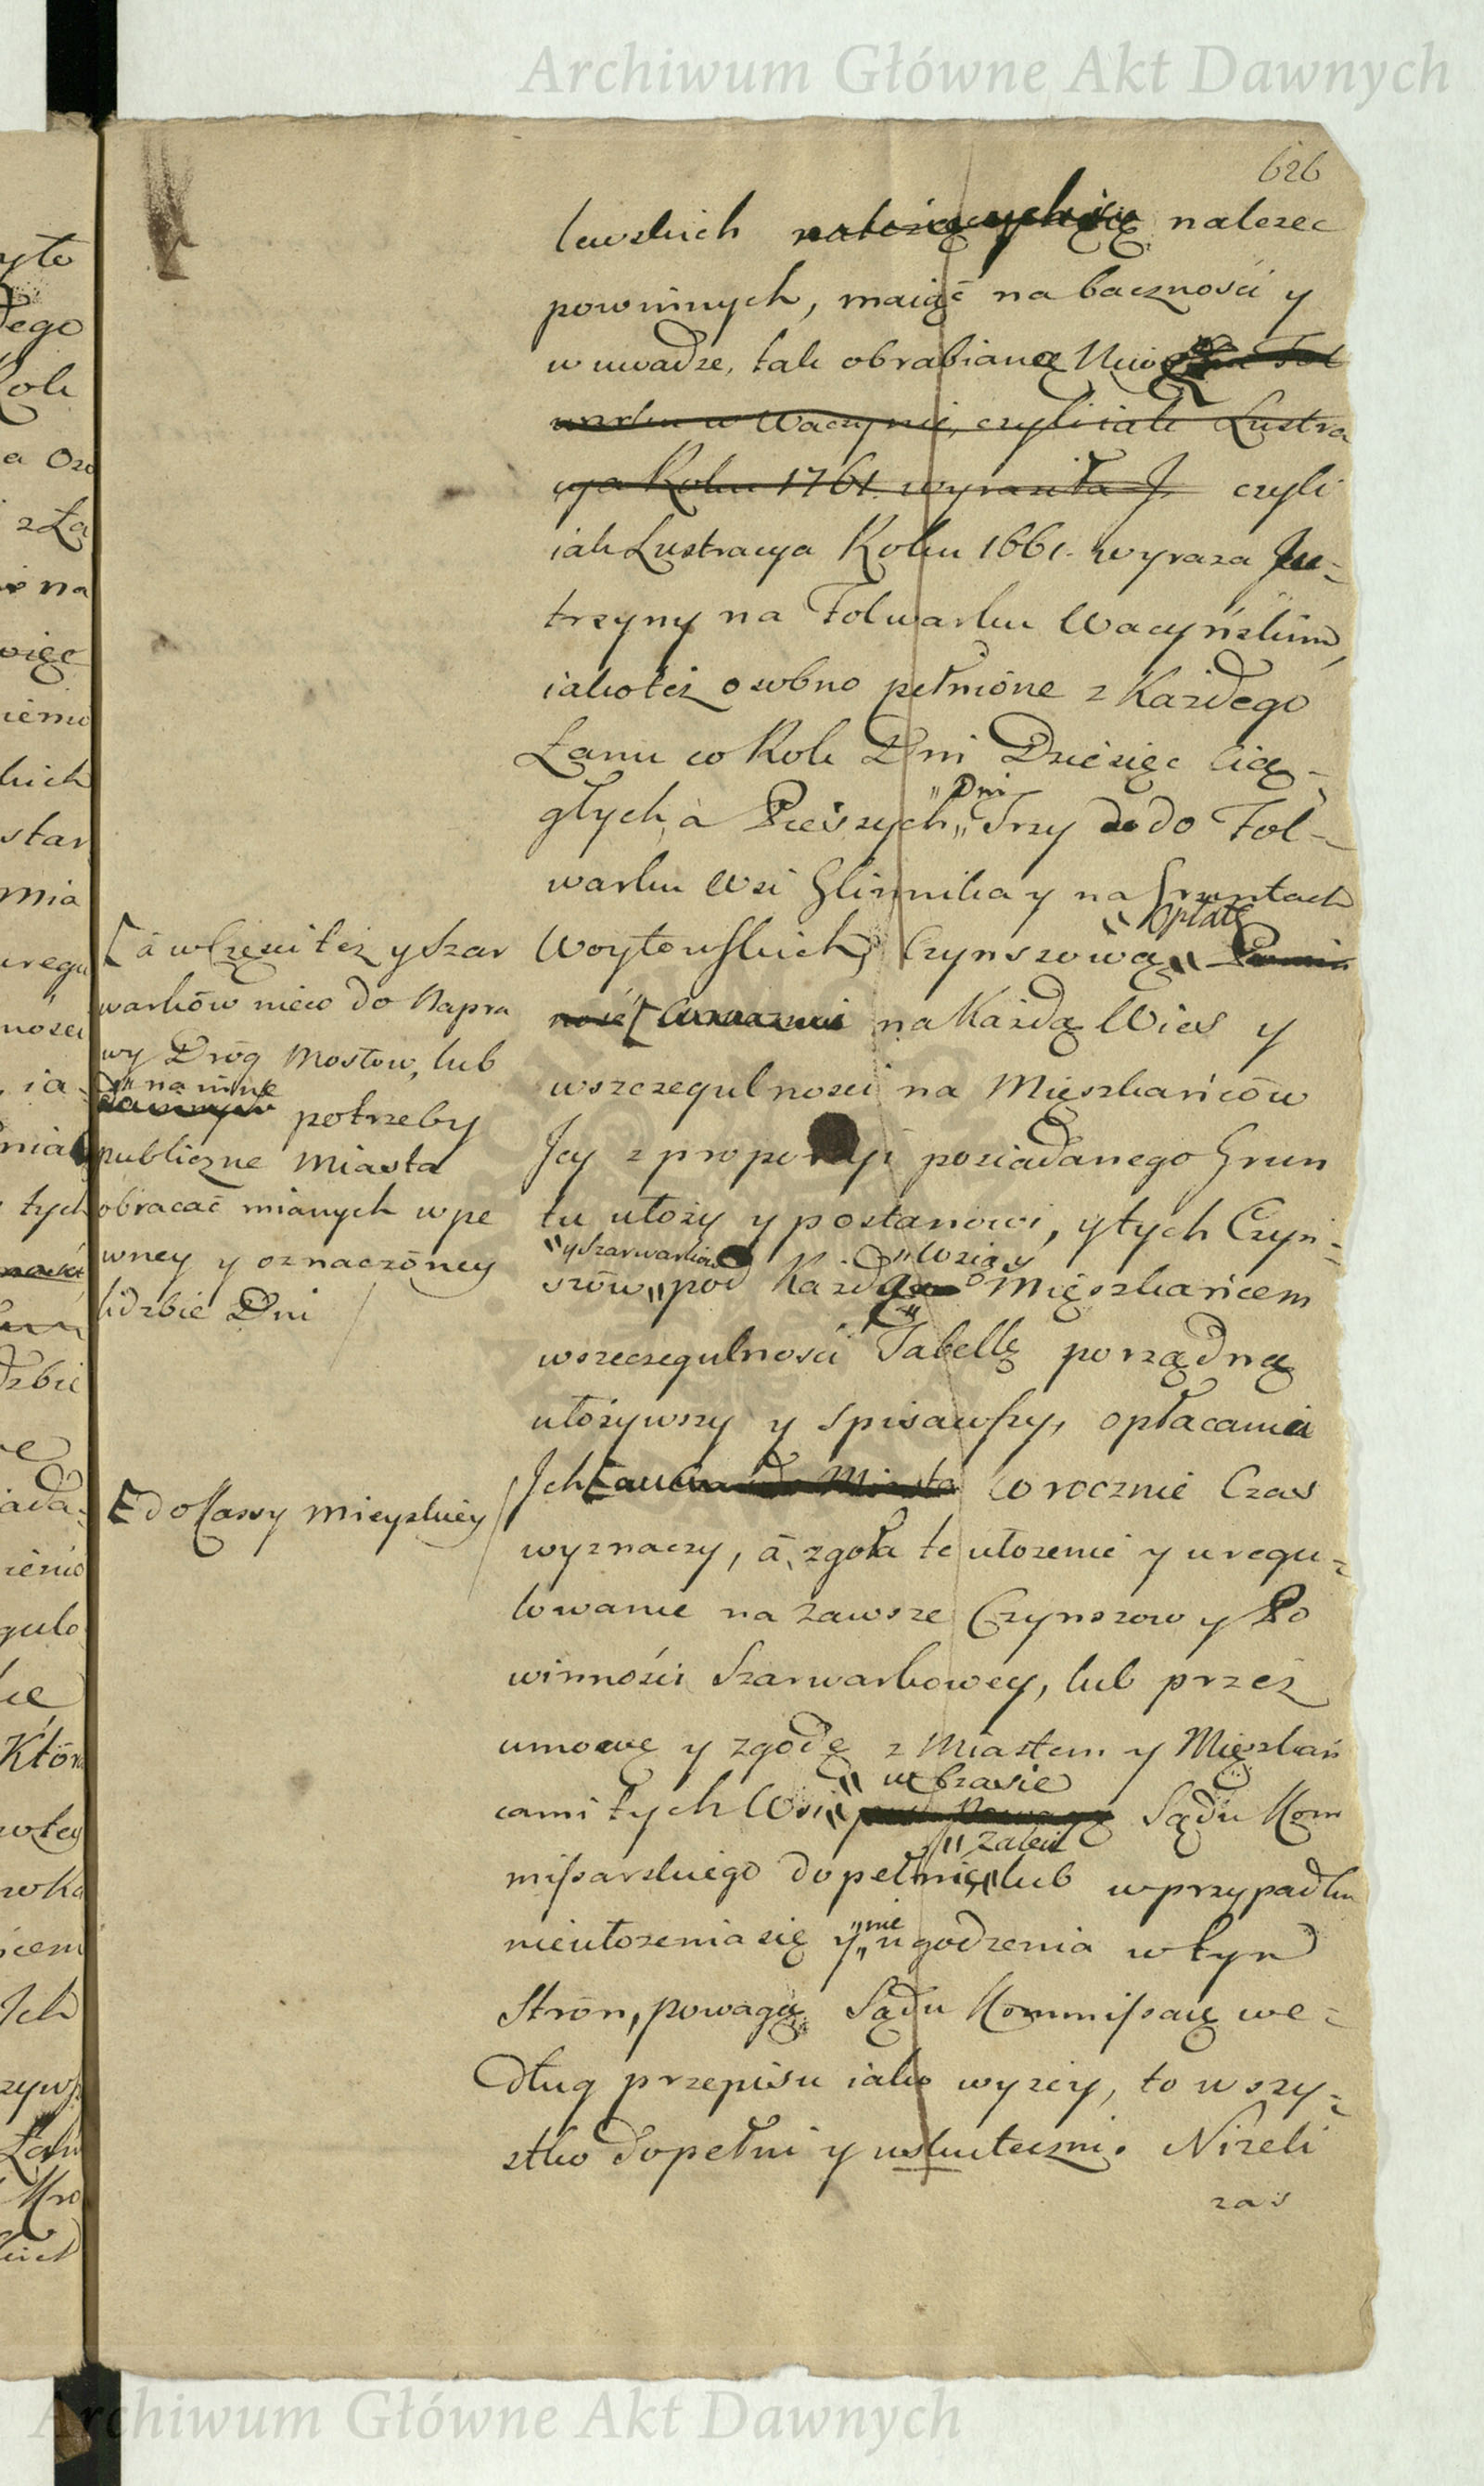 Archiwum Główne Akt Dawnych
626
lewskich należących się należeć
powinnych, maiąć na baczności y
w uwadze, tak obrabianą Niwę Fol
warku w Wacynie, czyli iak Lustra
cya Roku 1761. wyraziła J czyli
iak Lustracya Roku 1661. wyraza Ju-
trzyny na Folwarku Wacyńskim,
iakoteż osobno pełnione z Każdego
Łanu co Rok Dni Dziesięć Cią-
"Dni
głych, a Pieszych,, Trzy do do Fol-
warku Wsi Glinnika y na Gruntach
" Opłatę
Woytowskich, Czynszową,, Powin
ność [ na Każdą Wieś y
wszczegulności na Mięszkańców
Jey z proporcyi posiadanego Grun
tu ułoży y postanowi, y tych Czyn-
"y Szarwarków "Wsią y
szów,, pod Każdą Mięszkańcem
wszczegulności Tabellę porządną
ułożywszy y spisawszy, opłacania
Jch [ do Miasta Corocznie Czas
wyznaczy, á, zgoła te ułożenie y uregu-
lowanie na zawsze Czynszow y Po
winności Szarwarkowey, lub przez
umowę y zgodę z Miastem y Mięszkań
" w Czasie
cami tych Wsi,, pod Powagą Sądu Kom
" zaleci
missarskiego dopełnić,, lub w przypadku
"nie
nieułożenia się y,, ugodzenia w tym
Stron, powagą Sądu Kommissaię we-
dług przepisu iako wyżey, to wszy-
stko dopełni y uskuteczni. Niżeli
zaś
[ á w Części też y Szar
warków nieco do Napra
wy Dróg Mostow, lub
" na inne
potrzeby
publiczne Miasta
obracać mianych w pe
wney y oznaczóney
liczbie Dni
[ do Kassy Mieyskiey
Archiwum Główne Akt Dawnych